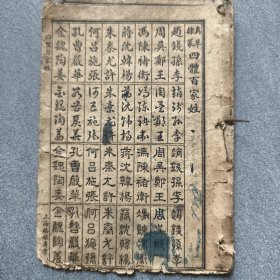 真草隸篆四體百家姓
趙錢孫李趙錢孫李趙錢孫李趙錢孫李
周吳鄭王周吳鄭王周吳鄭王周吳鄭王
馮陳褚衛馮陳褚衛馮陳褚衛馮陳褚衛
蔣沈韓楊蔣沈韓楊蔣沈韓楊蔣沈韓楊
朱秦尤許朱秦尤許朱秦尤許朱秦尤許
何呂施張何呂施張何呂施張何呂施張
孔曹嚴華孔曹嚴華孔曹嚴華孔曹嚴華
金魏陶姜金魏陶姜金魏陶姜金魏陶姜
四體百家姓